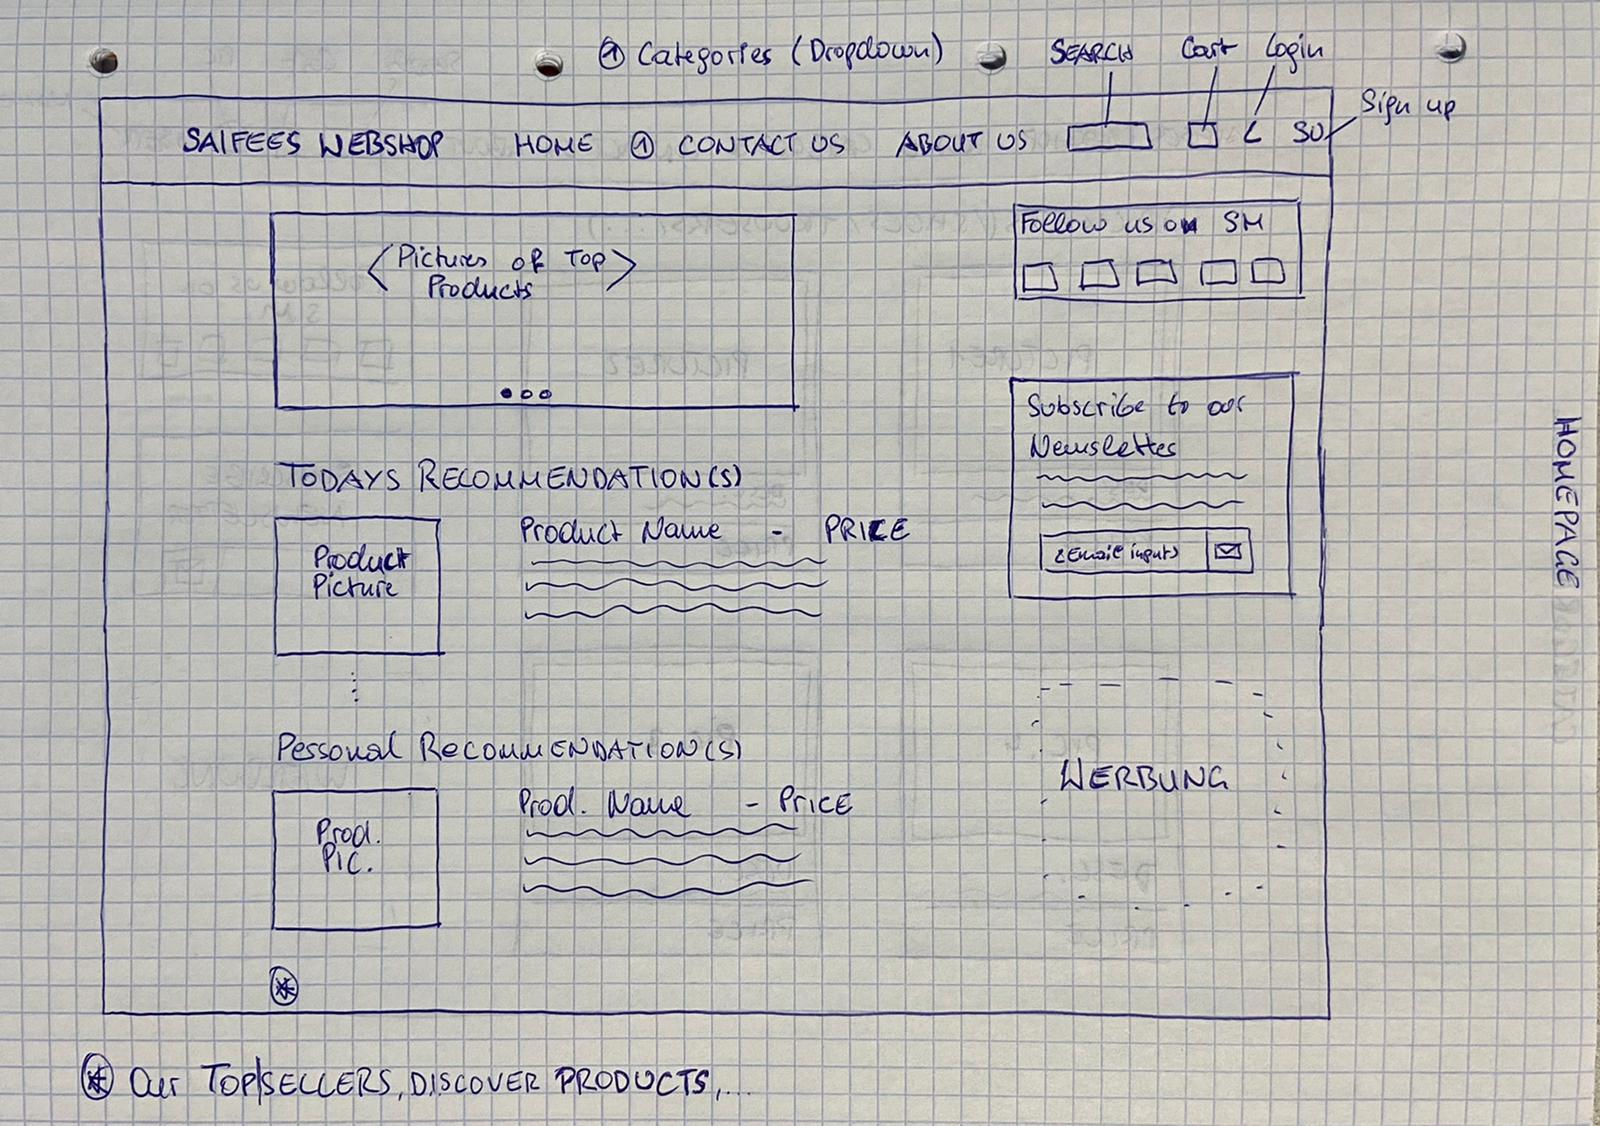 ① Categories (Dropdown)
SEARCH Cart Login
Sign up
SAIFEES WEBSHOP HOME ① CONTACT US ABOUT US L SU
<Pictures of Top>
Products
Follow us on SM
Subscribe to our
Newsletter
<Email input>
TODAYS RECOMMENDATION(S)
Product
Picture
Product Name - PRICE
Personal RECOMMENDATION(S)
Prod.
Pic.
Prod. Name - PRICE
WERBUNG
HOMEPAGE
Our TOP|SELLERS, DISCOVER PRODUCTS,...